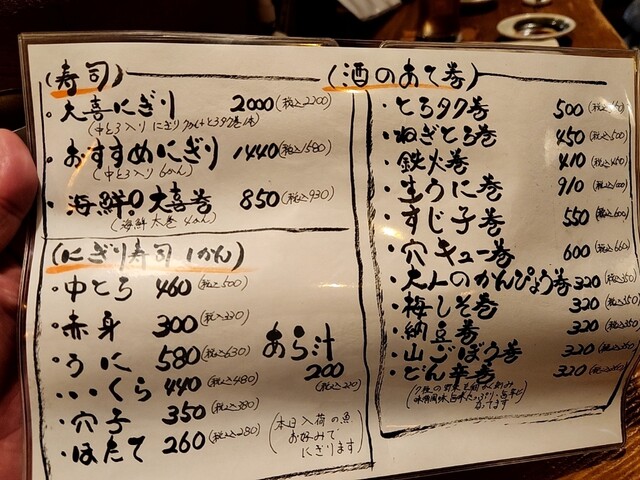 (寿司)
・大喜にぎり 2000(税込2200)
(中とろ入り にぎり7かんととろタク巻1本)
・おすすめにぎり 1440(税込1580)
(中とろ入り 6かん)
・海鮮!!大喜巻 850(税込930)
(海鮮太巻 4かん)
(にぎり寿司 1かん)
・中とろ 460(税込500)
・赤身 300(税込330)
・うに 580(税込630)
・いくら 440(税込480)
・穴子 350(税込380)
・ほたて 260(税込280)
あら汁
200
(税込220)
(本日入荷の魚
お好みで
にぎります)
(酒のあて巻)
・とろタク巻 500(税込550)
・ねぎとろ巻 450(税込500)
・鉄火巻 410(税込450)
・生うに巻 910(税込1000)
・すじ子巻 550(税込600)
・穴キュー巻 600(税込660)
・大人のかんぴょう巻 320(税込350)
・梅しそ巻 320(税込350)
・納豆巻 320(税込350)
・山ごぼう巻 320(税込350)
・とん辛巻 320(税込350)